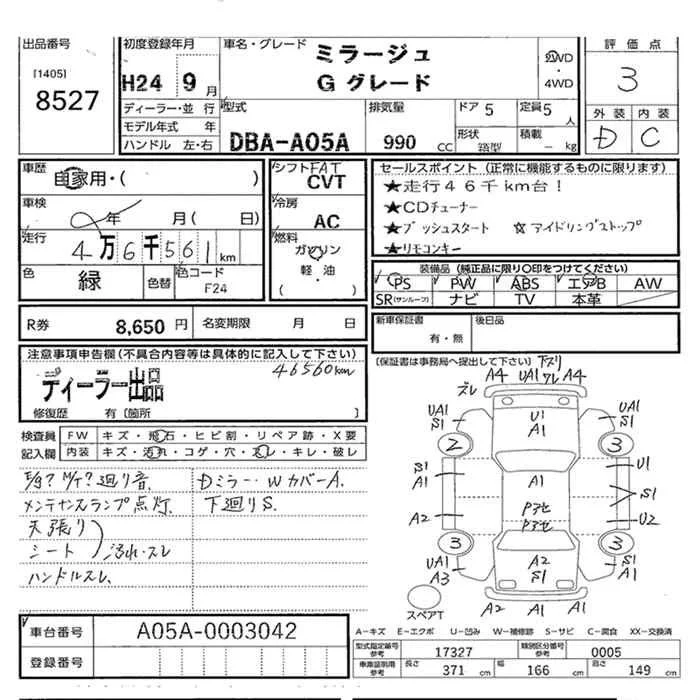 出品番号
[1405]
8527
初度登録年月
H24 9月
車名・グレード
ミラージュ
G グレード
2WD
・
4WD
評価点
3
外装 内装
D C
ディーラー・並行
モデル年式 年
ハンドル 左・右
型式
DBA-A05A
排気量
990 CC
ドア 5
形状 箱型
定員 5人
積載 - kg
車歴
自家用・( )
車検
年 月( 日)
走行
4万6千561km
色
緑
色替
色コード
F24
シフト FAT
CVT
冷房
AC
燃料
ガソリン
軽・油
( )
セールスポイント (正常に機能するものに限ります)
★走行46千km台!
★CDチューナー
★プッシュスタート ☆アイドリングストップ
★リモコンキー
装備品 (純正品に限り〇印をつけてください)
PS PW ABS エアB AW
SR(サンルーフ) ナビ TV 本革
R券 8,650円 名変期限 月 日
新車保証書
有・無
後日品
[保証書は事務局へ提出して下さい]
注意事項申告欄(不具合内容等は具体的に記入して下さい)
46560km
ディーラー出品
修復歴 有〔箇所 〕
検査員
記入欄
FW キズ・飛石・ヒビ割・リペア跡・X要
内装 キズ・汚れ・コゲ・穴・スレ・キレ・破レ
メンテナンスランプ点灯.
天張り
シート 汚れ・スレ
ハンドルスレ.
Dミラー・WカバーA.
下廻りS.
下スリ
ズレ A4 UA1 ワレ A4
UA1
S1
U1
A1
UA1
S1
2
3
S1
A1
A1
U1
S1
A2
Pアセ
Pアセ
U2
3
3
UA1
A3
A2
S1
S1
A1
スペアT
A2 A1 A1
車台番号 A05A-0003042
登録番号
A-キズ E-エクボ U-凹み W-補修跡 S-サビ C-腐食 XX-交換済
型式指定番号
参考
17327
類別区分番号
参考
0005
車庫証明用
参考
長さ 371 cm 幅 166 cm 高さ 149 cm